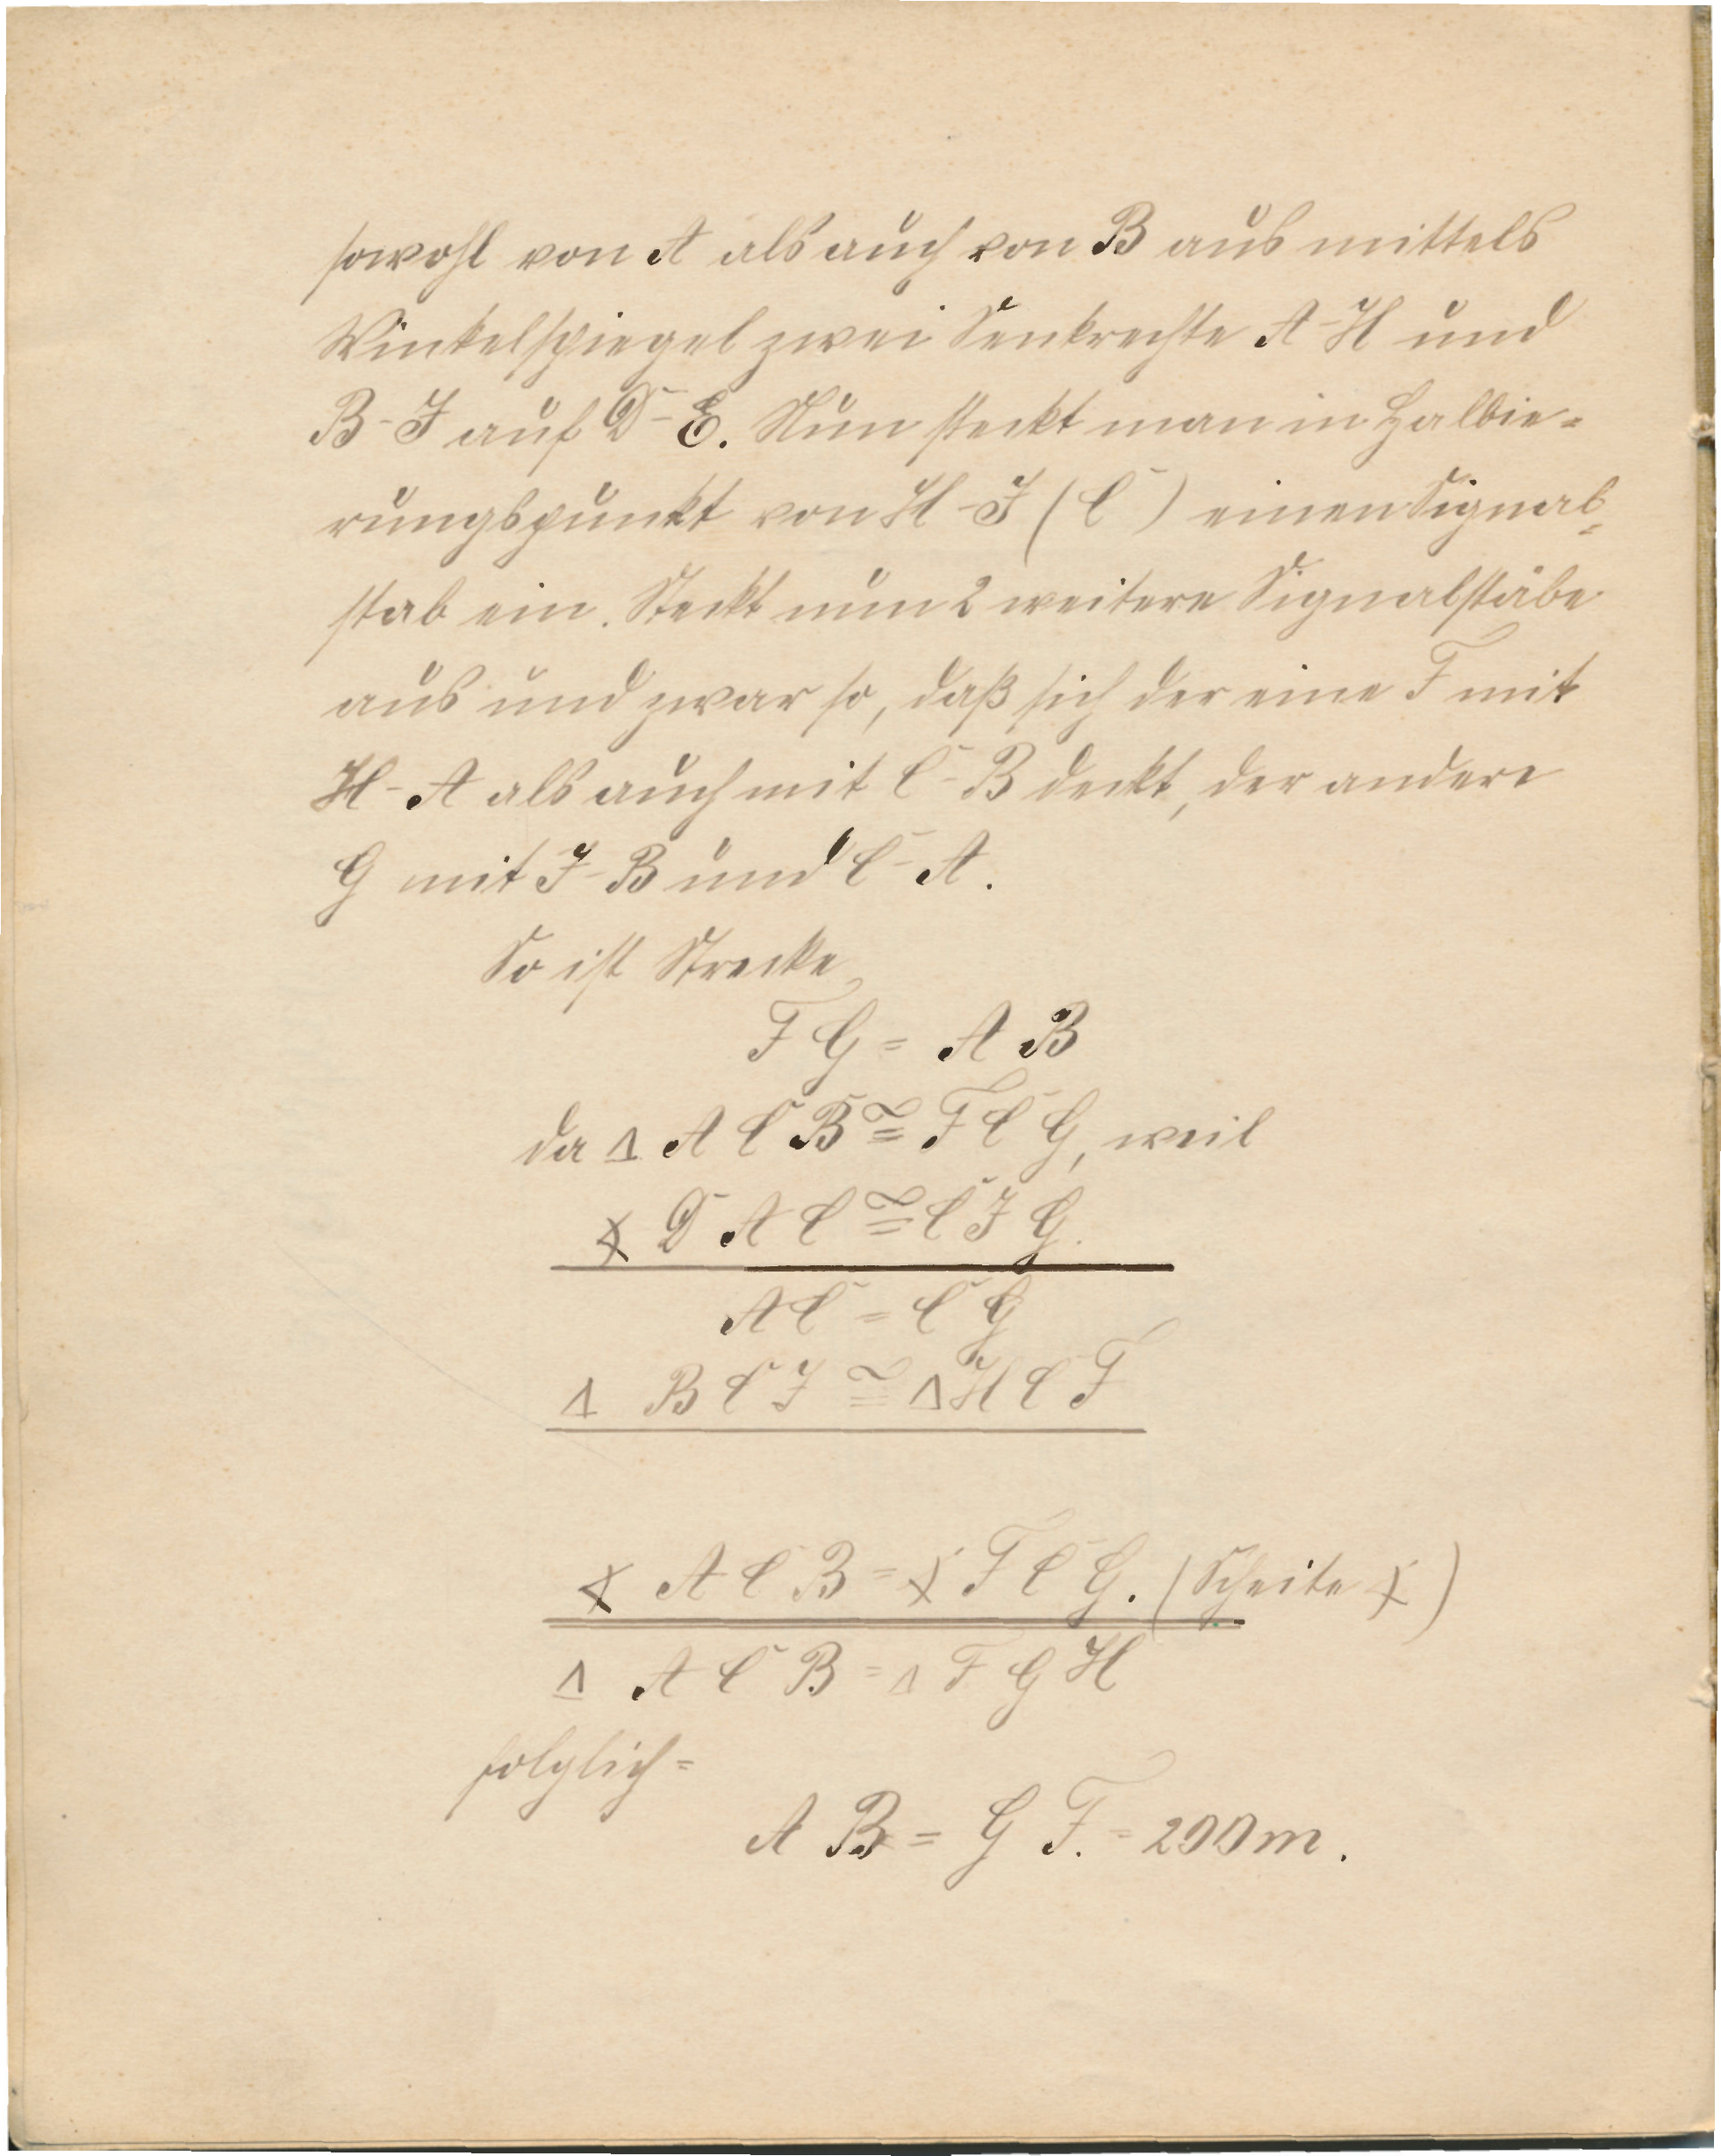 sowohl von A als auch von B aus mittels
Winkelspiegel zwei Senkrechte A-H und
B-J auf D-E. Nun steckt man in Halbie=
rungspunkt von H-J (C) einen Signal=
stab ein. Steckt nun 2 weitere Signalstäbe
aus und zwar so, daß sich der eine F mit
H-A als auch mit C-B deckt, der andere
G mit J-B und C-A.
So ist Strecke
F G = A B
da △ A C B ≅ F C G, weil
∢ D A C ≅ C J G.
A C = C G
△ B C J ≅ △ H C F
∢ A C B = ∢ F C G. (Scheite ∢)
△ A C B = △ F G H
folglich =
A B = G F. = 200 m.